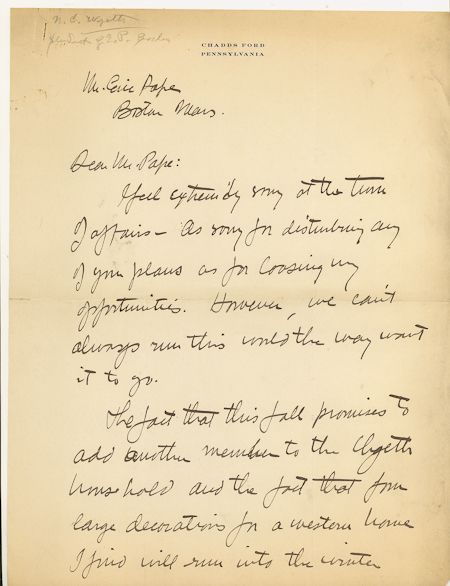 N. C. Wyeth
CHADDS FORD
PENNSYLVANIA
Mr. Eric Pape
Boston Mass.
Dear Mr. Pape:
I feel extremely sorry at the turn
of affairs – As sorry for disturbing any
of your plans as for loosing my
opportunities. However, we can't
always run this world the way want
it to go.
The fact that this fall promises to
add another member to the Wyeth
household and the fact that four
large decorations for a western home
I find will run into the winter